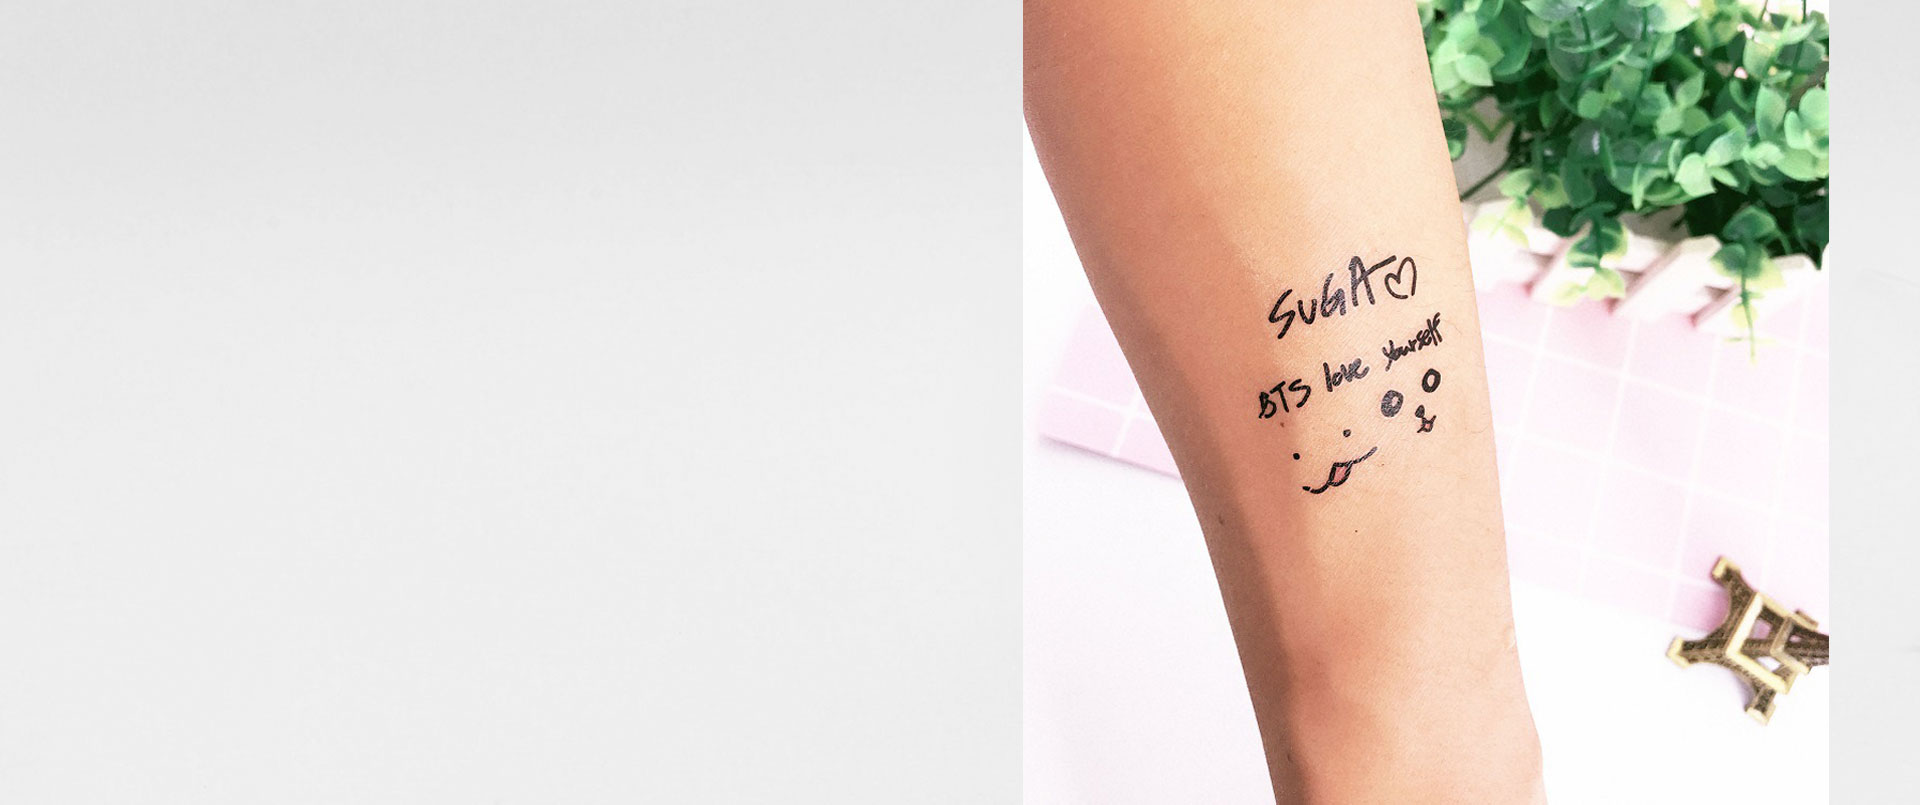 SUGA♡
BTS love yourself